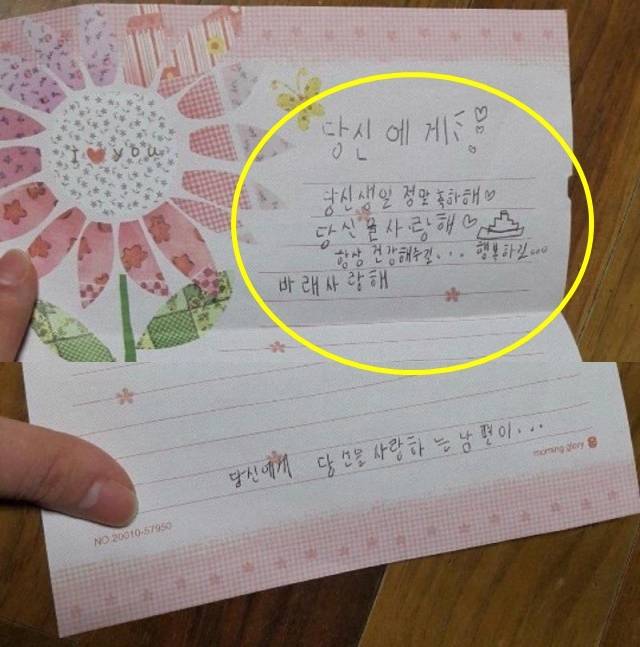 I ♥ you
당신에게 ♡♡♡
당신생일 정말 축하해♡
당신을사랑해♡
항상 건강해주길... 행복하길...
바래사랑해
당신에게 당신을 사랑하는남편이...
morning glory
NO.20010-57950